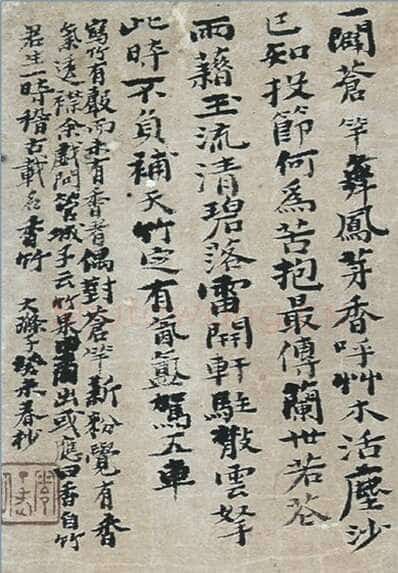 一闢蒼竿舞鳳芽香呼艸木活塵沙
已知投節何為苦抱最傳蘭世若
雨藉玉流清碧落雷開軒駐散雲拏
此時不負補天竹定有氤氳駕五車
寫竹有聲而未有香者偶對蒼竿新粉覺有香
氣透襟余戲問管城子云竹果出或應曰香自竹
君生一時稽古載名香竹 大滌子癸未春杪